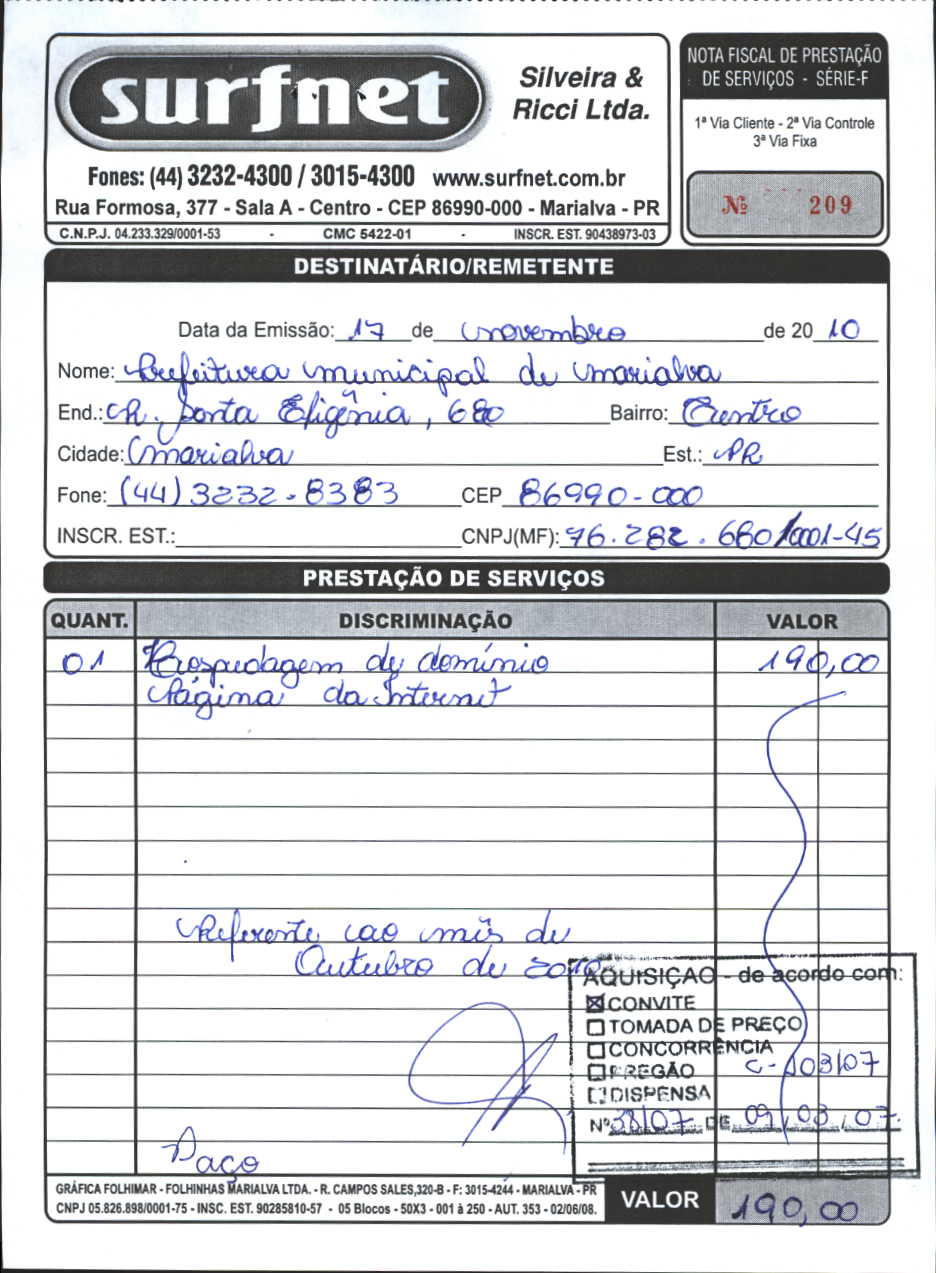 surfnet
Silveira &
Ricci Ltda.
Fones: (44) 3232-4300 / 3015-4300 www.surfnet.com.br
Rua Formosa, 377 - Sala A - Centro - CEP 86990-000 - Marialva - PR
C.N.P.J. 04.233.329/0001-53 - CMC 5422-01 - INSCR. EST. 90438973-03
NOTA FISCAL DE PRESTAÇÃO
DE SERVIÇOS - SÉRIE-F
1ª Via Cliente - 2ª Via Controle
3ª Via Fixa
Nº 209
DESTINATÁRIO/REMETENTE
Data da Emissão: 17 de novembro de 2010
Nome: Prefeitura municipal de marialva
End.: R. Santa Efigênia, 680 Bairro: Centro
Cidade: marialva Est.: PR
Fone: (44) 3232-8383 CEP 86990-000
INSCR. EST.: CNPJ(MF): 76.282.680/0001-45
PRESTAÇÃO DE SERVIÇOS
QUANT. DISCRIMINAÇÃO VALOR
01 Hospedagem de domínio 190,00
Página da Internet
Referente ao mês de
Outubro de 2010
AQUISIÇAO - de acordo com:
☒ CONVITE
☐ TOMADA DE PREÇO
☐ CONCORRÊNCIA
☐ PREGÃO C-103/07
☐ DISPENSA
Nº 38/07 DE 09/03/07.
Paço
GRÁFICA FOLHIMAR - FOLHINHAS MARIALVA LTDA. - R. CAMPOS SALES,320-B - F: 3015-4244 - MARIALVA - PR
CNPJ 05.826.898/0001-75 - INSC. EST. 90285810-57 - 05 Blocos - 50X3 - 001 à 250 - AUT. 353 - 02/06/08.
VALOR 190,00